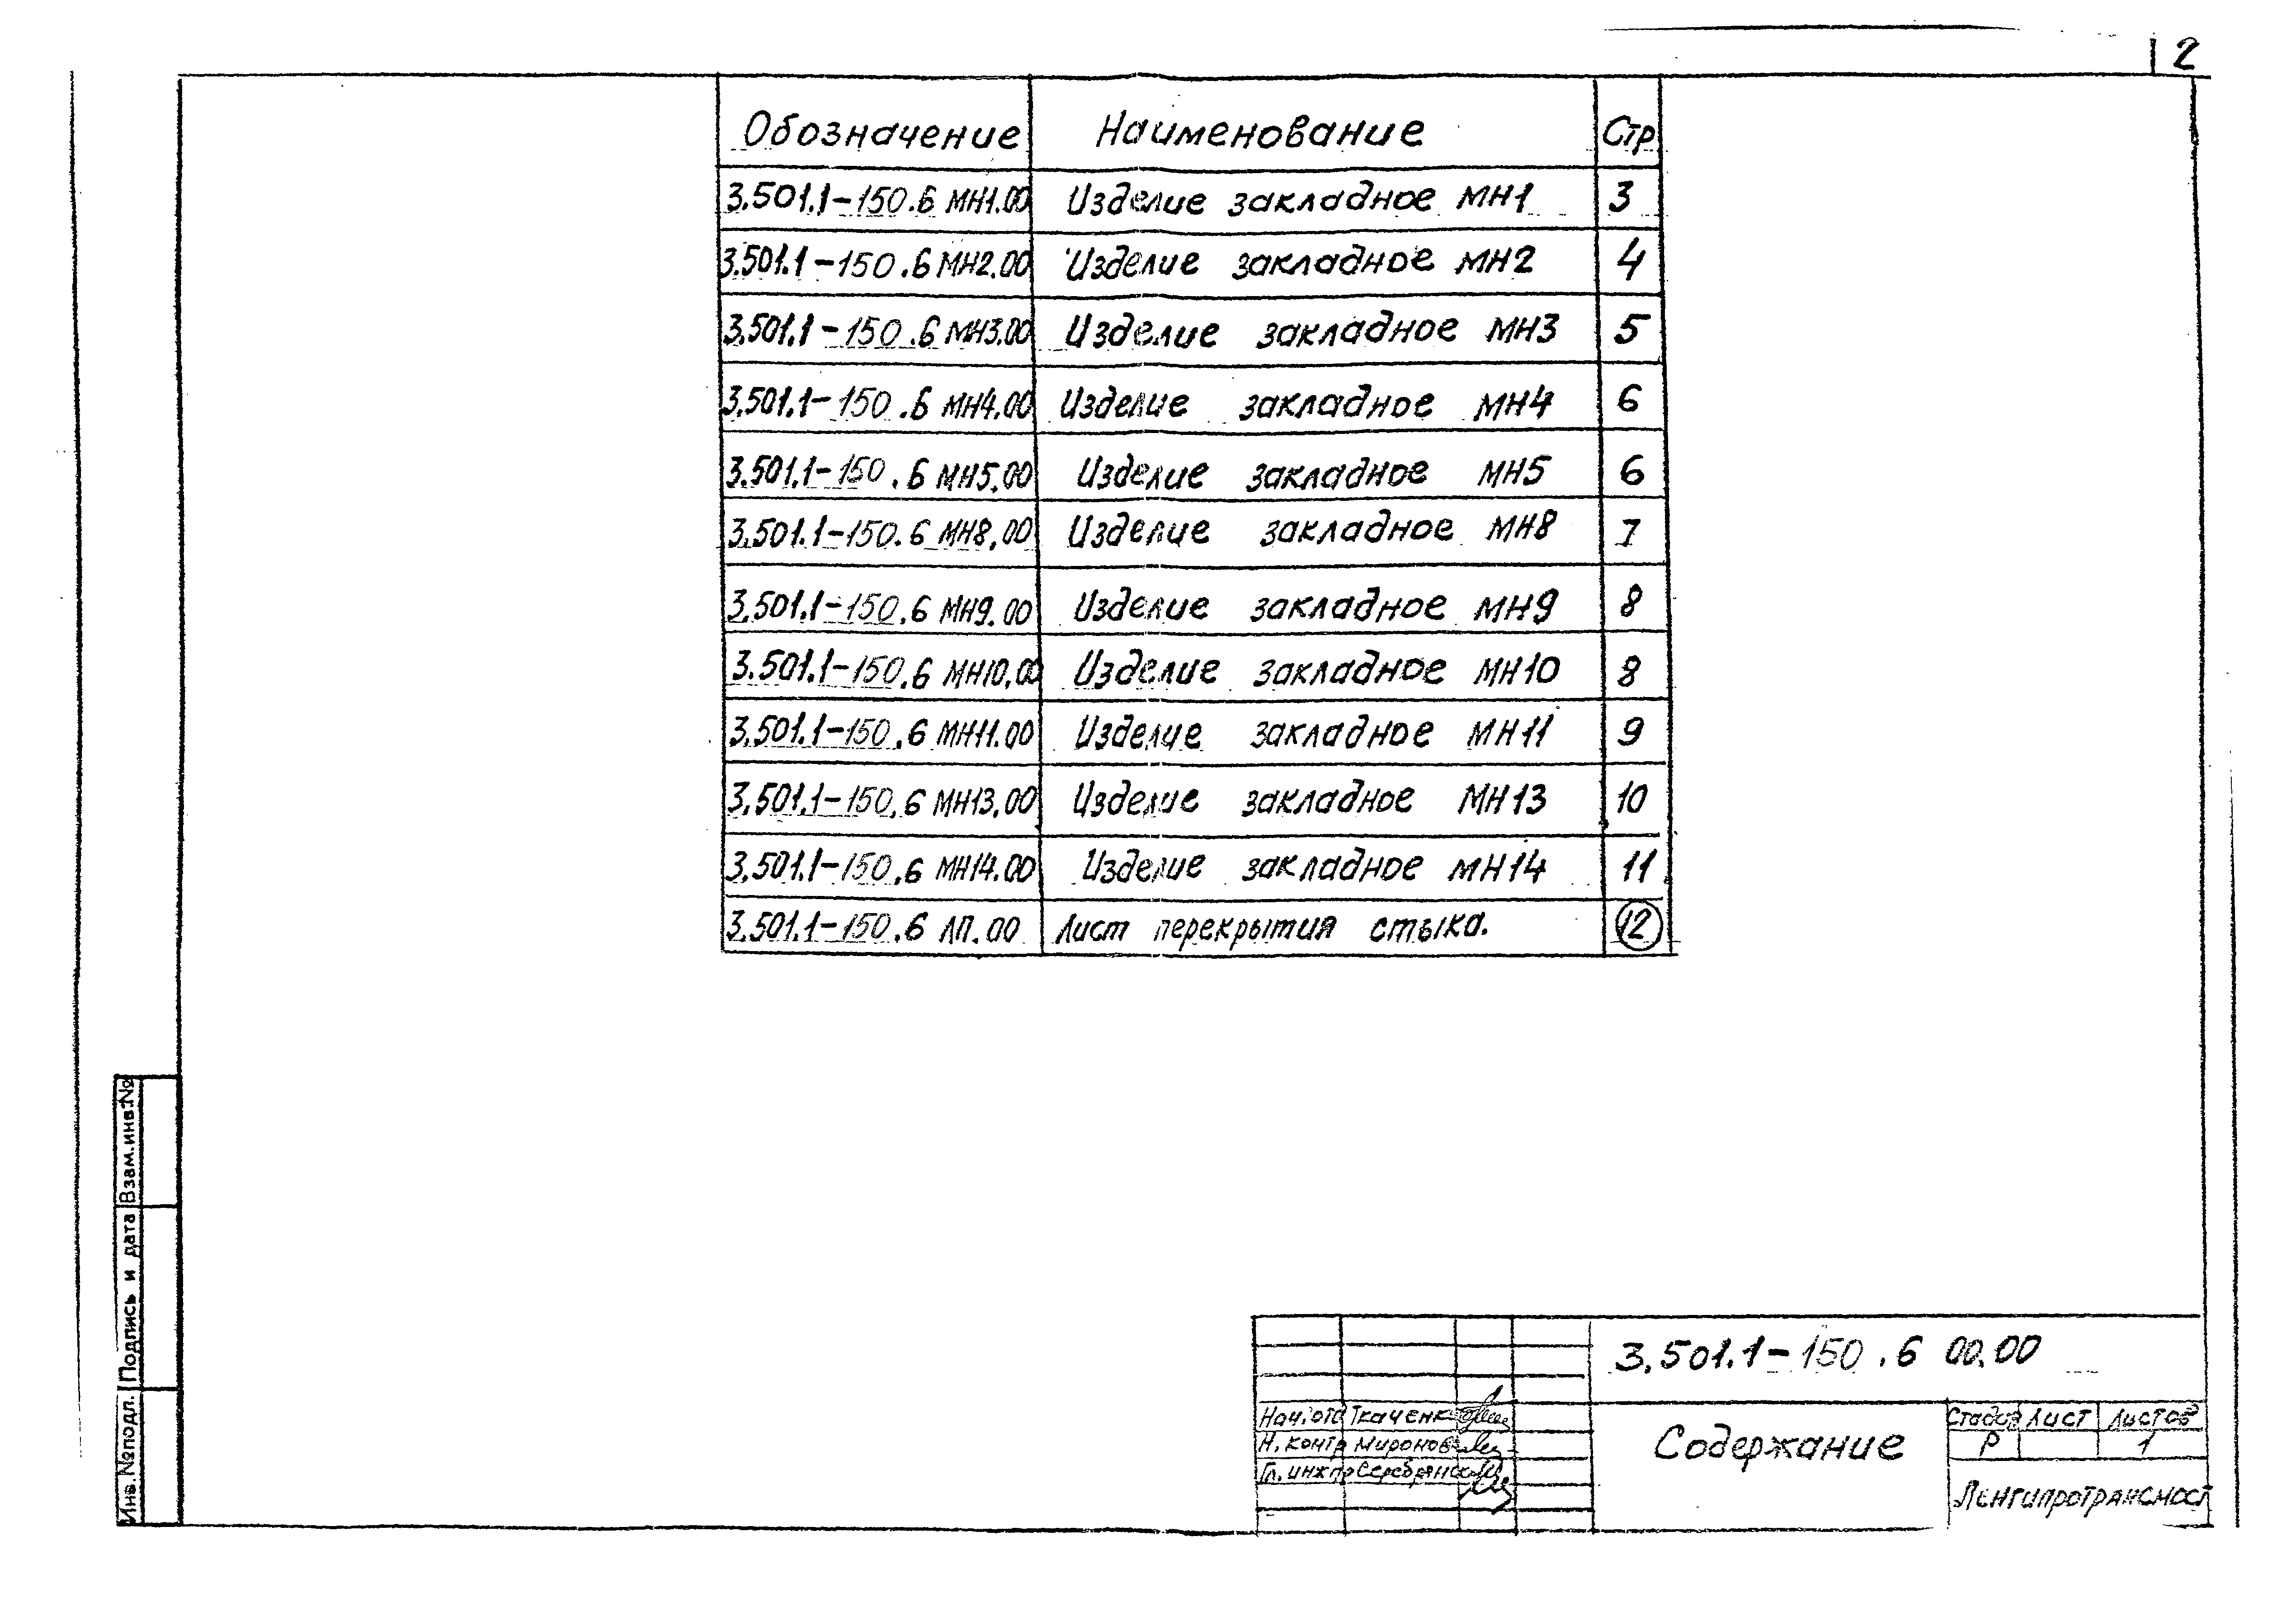 2
Обозначение Наименование Стр
3.501.1-150.6 МН1.00 Изделие закладное МН1 3
3.501.1-150.6 МН2.00 Изделие закладное МН2 4
3.501.1-150.6 МН3.00 Изделие закладное МН3 5
3.501.1-150.6 МН4.00 Изделие закладное МН4 6
3.501.1-150.6 МН5.00 Изделие закладное МН5 6
3.501.1-150.6 МН8.00 Изделие закладное МН8 7
3.501.1-150.6 МН9.00 Изделие закладное МН9 8
3.501.1-150.6 МН10.00 Изделие закладное МН10 8
3.501.1-150.6 МН11.00 Изделие закладное МН11 9
3.501.1-150.6 МН13.00 Изделие закладное МН13 10
3.501.1-150.6 МН14.00 Изделие закладное МН14 11
3.501.1-150.6 ЛП.00 Лист перекрытия стыка. 12
Взам.инв.№
Подпись и дата
Инв.№ подл.
3.501.1-150.6 00.00
Нач.отд Ткаченк
Н. контр Миронов
Гл. инж пр Серебрянск
Содержание
Стадия Лист Листов
Р 1
Ленгипротрансмост